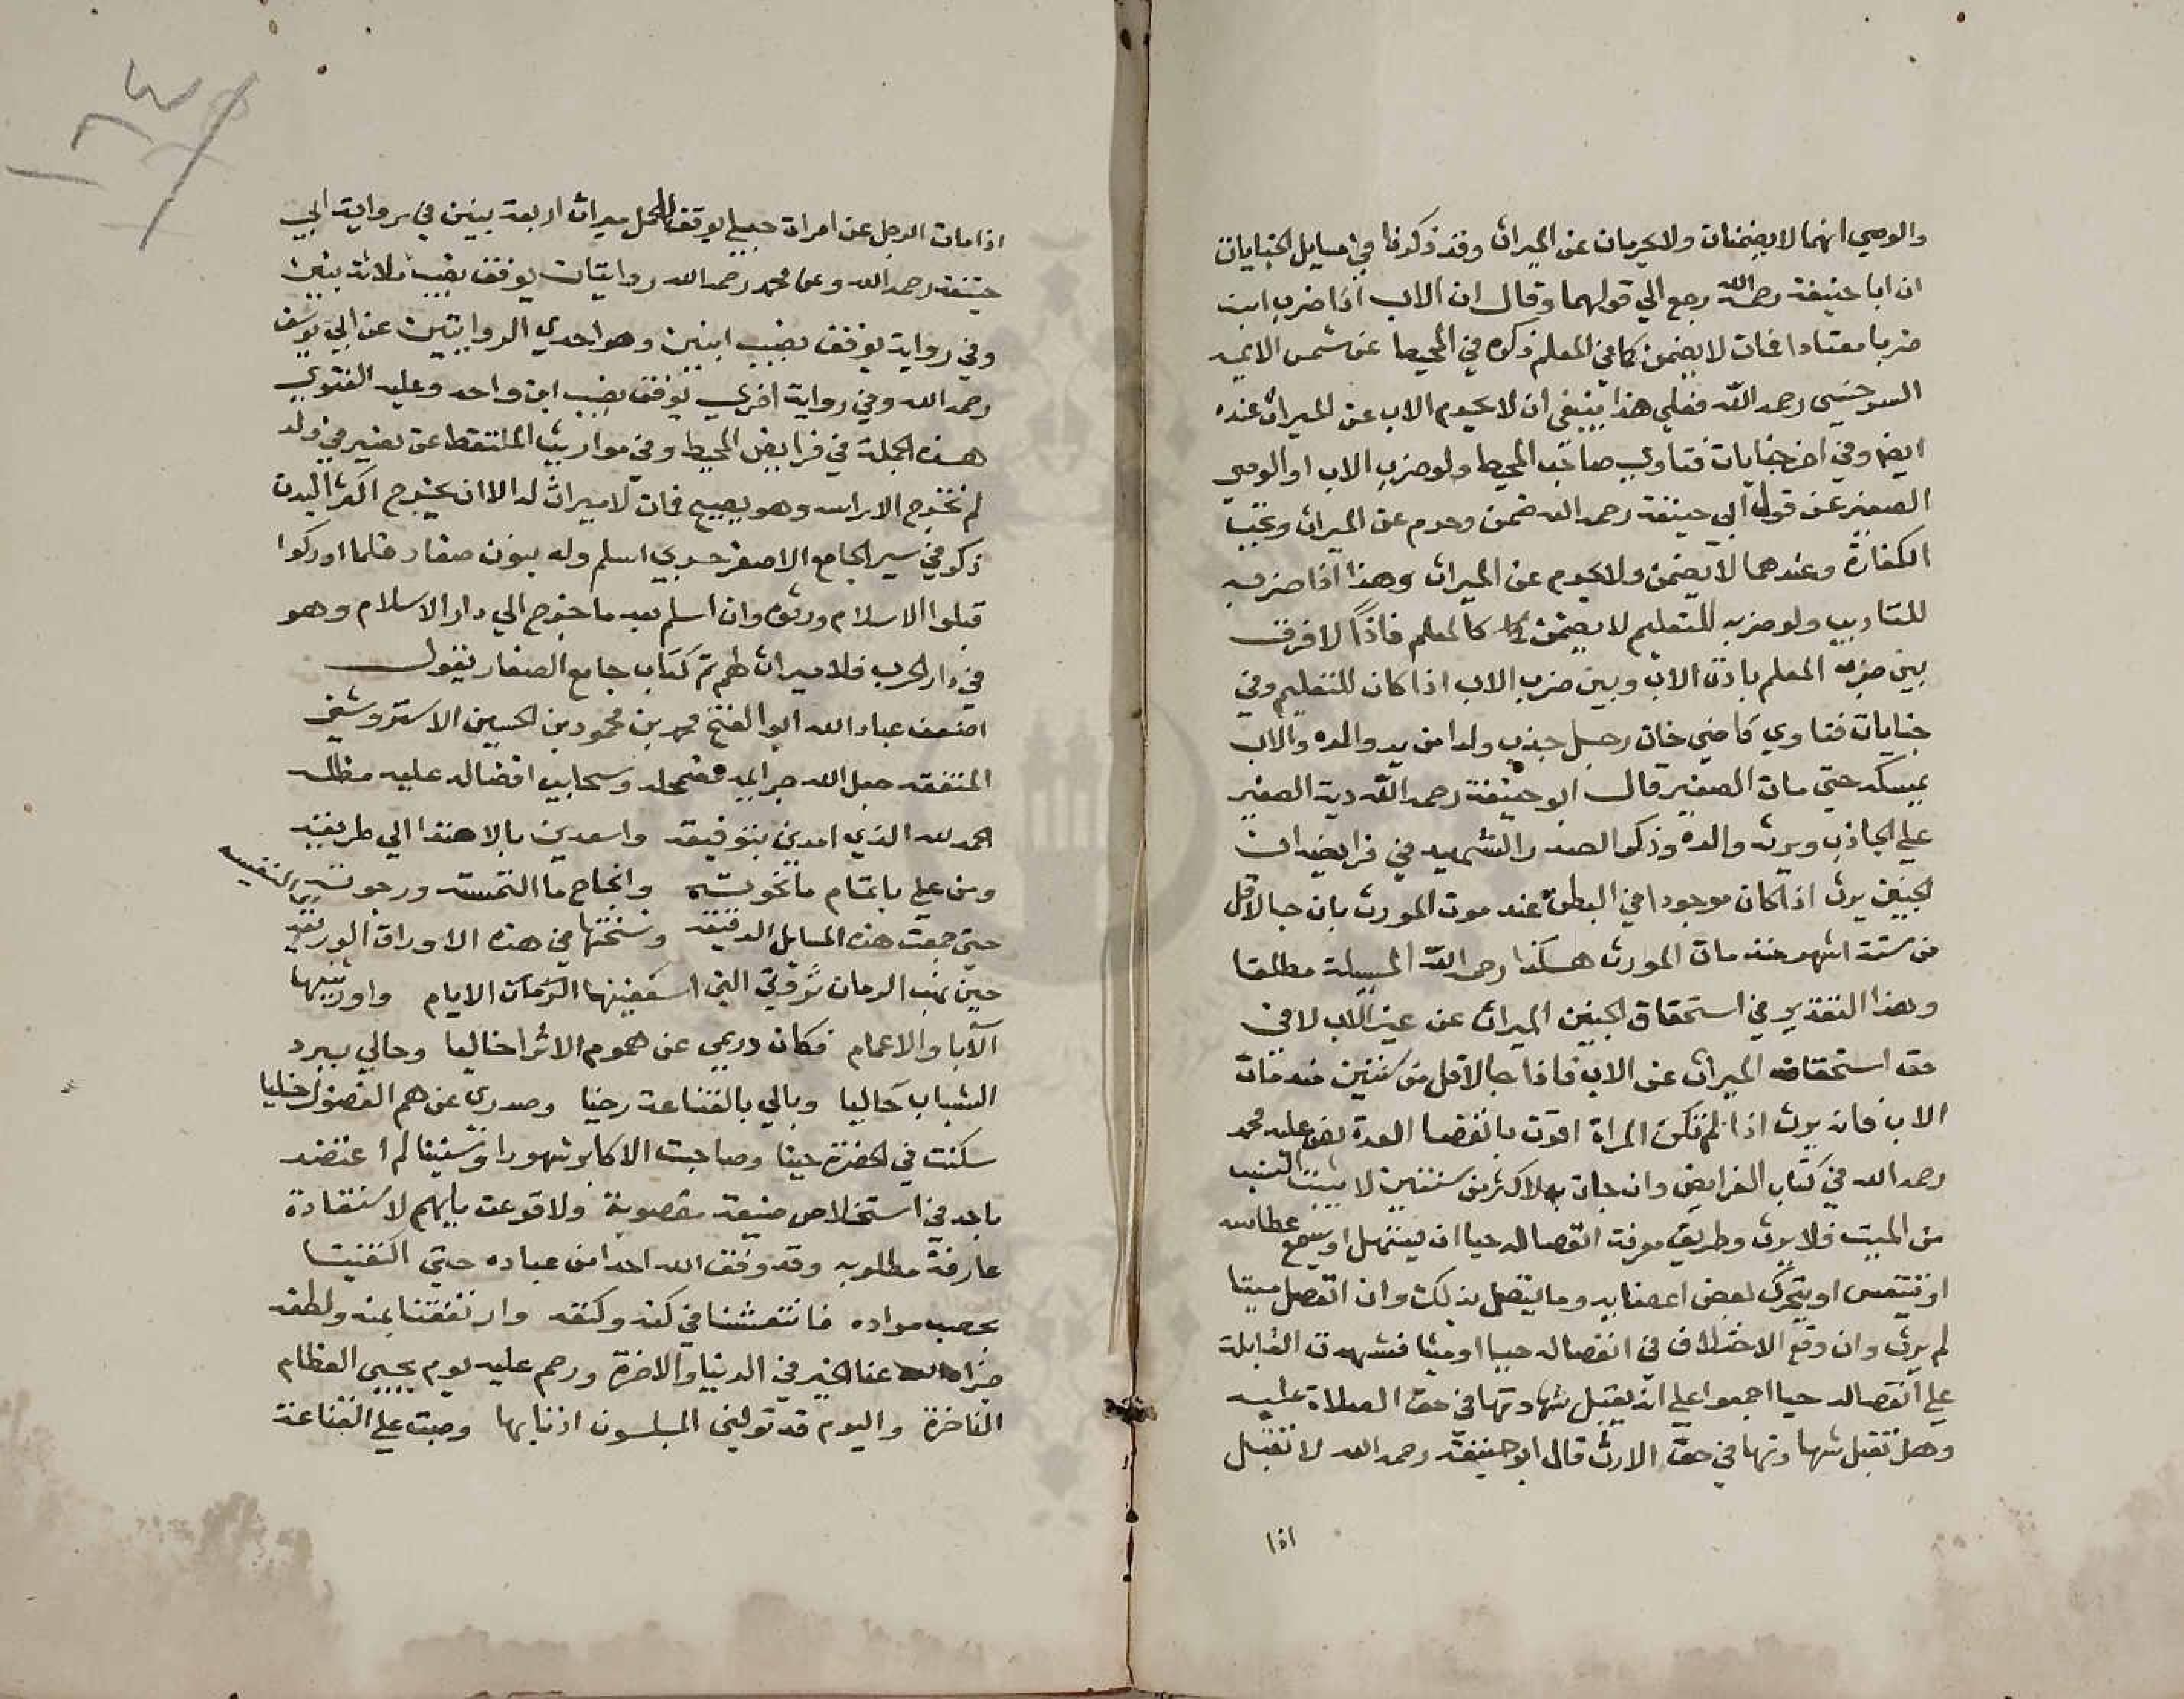 والوصي انهما لا يضمنان ولا يحرمان عن الميراث وقد ذكرنا في مسايل الجنايات
ان ابا حنيفة رحمه الله رجع الي قولهما وقال ان الاب اذا ضرب ابنه
ضربا معتادا فمات لا يضمن كما في المعلم ذكره في المحيط عن شمس الايمه
السرخسي رحمه الله فعلي هذا ينبغي ان لا يحرم الاب عن الميراث عنده
ايضا وفي اخر جنايات فتاوي صاحب المحيط ولو ضرب الاب او الوصي
الصغير عن قول ابي حنيفة رحمه الله ضمن وحرم عن الميراث وتجب
الكفارة وعندهما لا يضمن ولا يحرم عن الميراث وهذا اذا ضربه
للتاديب ولو ضربه للتعليم لا يضمن كالمعلم فاذا لا فرق
بين ضرب المعلم باذن الاب وبين ضرب الاب اذا كان للتعليم وفي
جنايات فتاوي قاضي خان رجل جذب ولدا من يد والده والاب
يمسكه حتي مات الصغير قال ابو حنيفة رحمه الله دية الصغير
علي الجاذب ويرثه والده وذكر الصدر الشهيد في فرايضه ان
الجنين يرث اذا كان موجودا في البطن عند موت المورث بان جا لاقل
من ستة اشهر منذ مات المورث هكذا رحمه الله المسيلة مطلقا
وهذا التقدير في استحقاق الجنين الميراث عن غير الاب لا في
حق استحقاقه الميراث عن الاب فاذا جا لاقل من سنتين منذ مات
الاب فانه يرث اذا لم تكن المراة اقرت بانقضا العدة نص عليه محمد
رحمه الله في كتاب الفرايض وان جات به لاكثر من سنتين لا يثبت النسب
من الميت فلا يرث وطريق معرفة انفصاله حيا ان يستهل او يسمع عطاسه
او يتنفس او يتحرك بعض اعضايه وما يتصل بذلك وان انفصل ميتا
لم يرث وان وقع الاختلاف في انفصاله حيا او ميتا فشهدت القابلة
علي انفصاله حيا اجمعوا علي انه يقبل شهادتها في حق الصلاة عليه
وهل تقبل شهادتها في حق الارث قال ابو حنيفة رحمه الله لا تقبل
اذا
اذا مات الرجل عن امراة حبلي يوقف للحمل ميراث اربعة بنين في رواية ابي
حنيفة رحمه الله وعن محمد رحمه الله روايتان يوقف نصيب ثلاثة بنين
وفي رواية يوقف نصيب ابنين وهو احدي الروايتين عن ابي يوسف
رحمه الله وفي رواية اخري يوقف نصيب ابن واحد وعليه الفتوي
هذه الجملة في فرايض المحيط وفي مواريث الملتقط عن نصير في ولد
لم تخرج الا راسه وهو يصيح فمات لا ميراث له الا ان يخرج اكثر البدن
ذكر في سير الجامع الاصغر حربي اسلم وله بنون صغار فلما ادركوا
قبلوا الاسلام ورثوه وان اسلم بعد ما خرج الي دار الاسلام وهو
في دار الحرب فلا ميراث لهم تم كتاب جامع الصغار يقول
اضعف عباد الله ابو الفتح محمد بن محمود بن الحسين الاستروشني
المتفقه جعل الله جرايمه مضمحله وسحايب افضاله عليه مظله
الحمد لله الذي امدني بتوفيقه واسعدني بالاهتدا الي طريقه
ومن علي باتمام ما نحوته وانجاح ما التمسته ورجوته
حتي جمعت هذه المسايل الدقيقة النفيسه ونسختها في هذه الاوراق الوريقة
حين نهب الزمان ثروتي التي الايام واورثنيها
الآبا والاعمام فكان دريمي عن هموم الاثرا خاليا وحالي ببرد
الشباب حاليا وبالي بالقناعة رخيا وصدري عن هم الفضول خليا
سكنت في الحضرة حينا وصاحبت الاكابر شهورا وسنينا لم اعتضد
باحد في استخلاص ضيعة مغصوبة ولا قرعت بابهم لاستفادة
عارفة مطلوبه وقد وفق الله احدا من عباده حتي اكتفيت
بخصب مواده فانتعشنا في كفه وكنفه وارتفقنا بمنه ولطفه
جزاه الله عنا الخير في الدنيا والاخرة ورحم عليه يوم يحيي العظام
الناخرة واليوم قد توليني المبلسون اذنابها وصبت علي القناعة